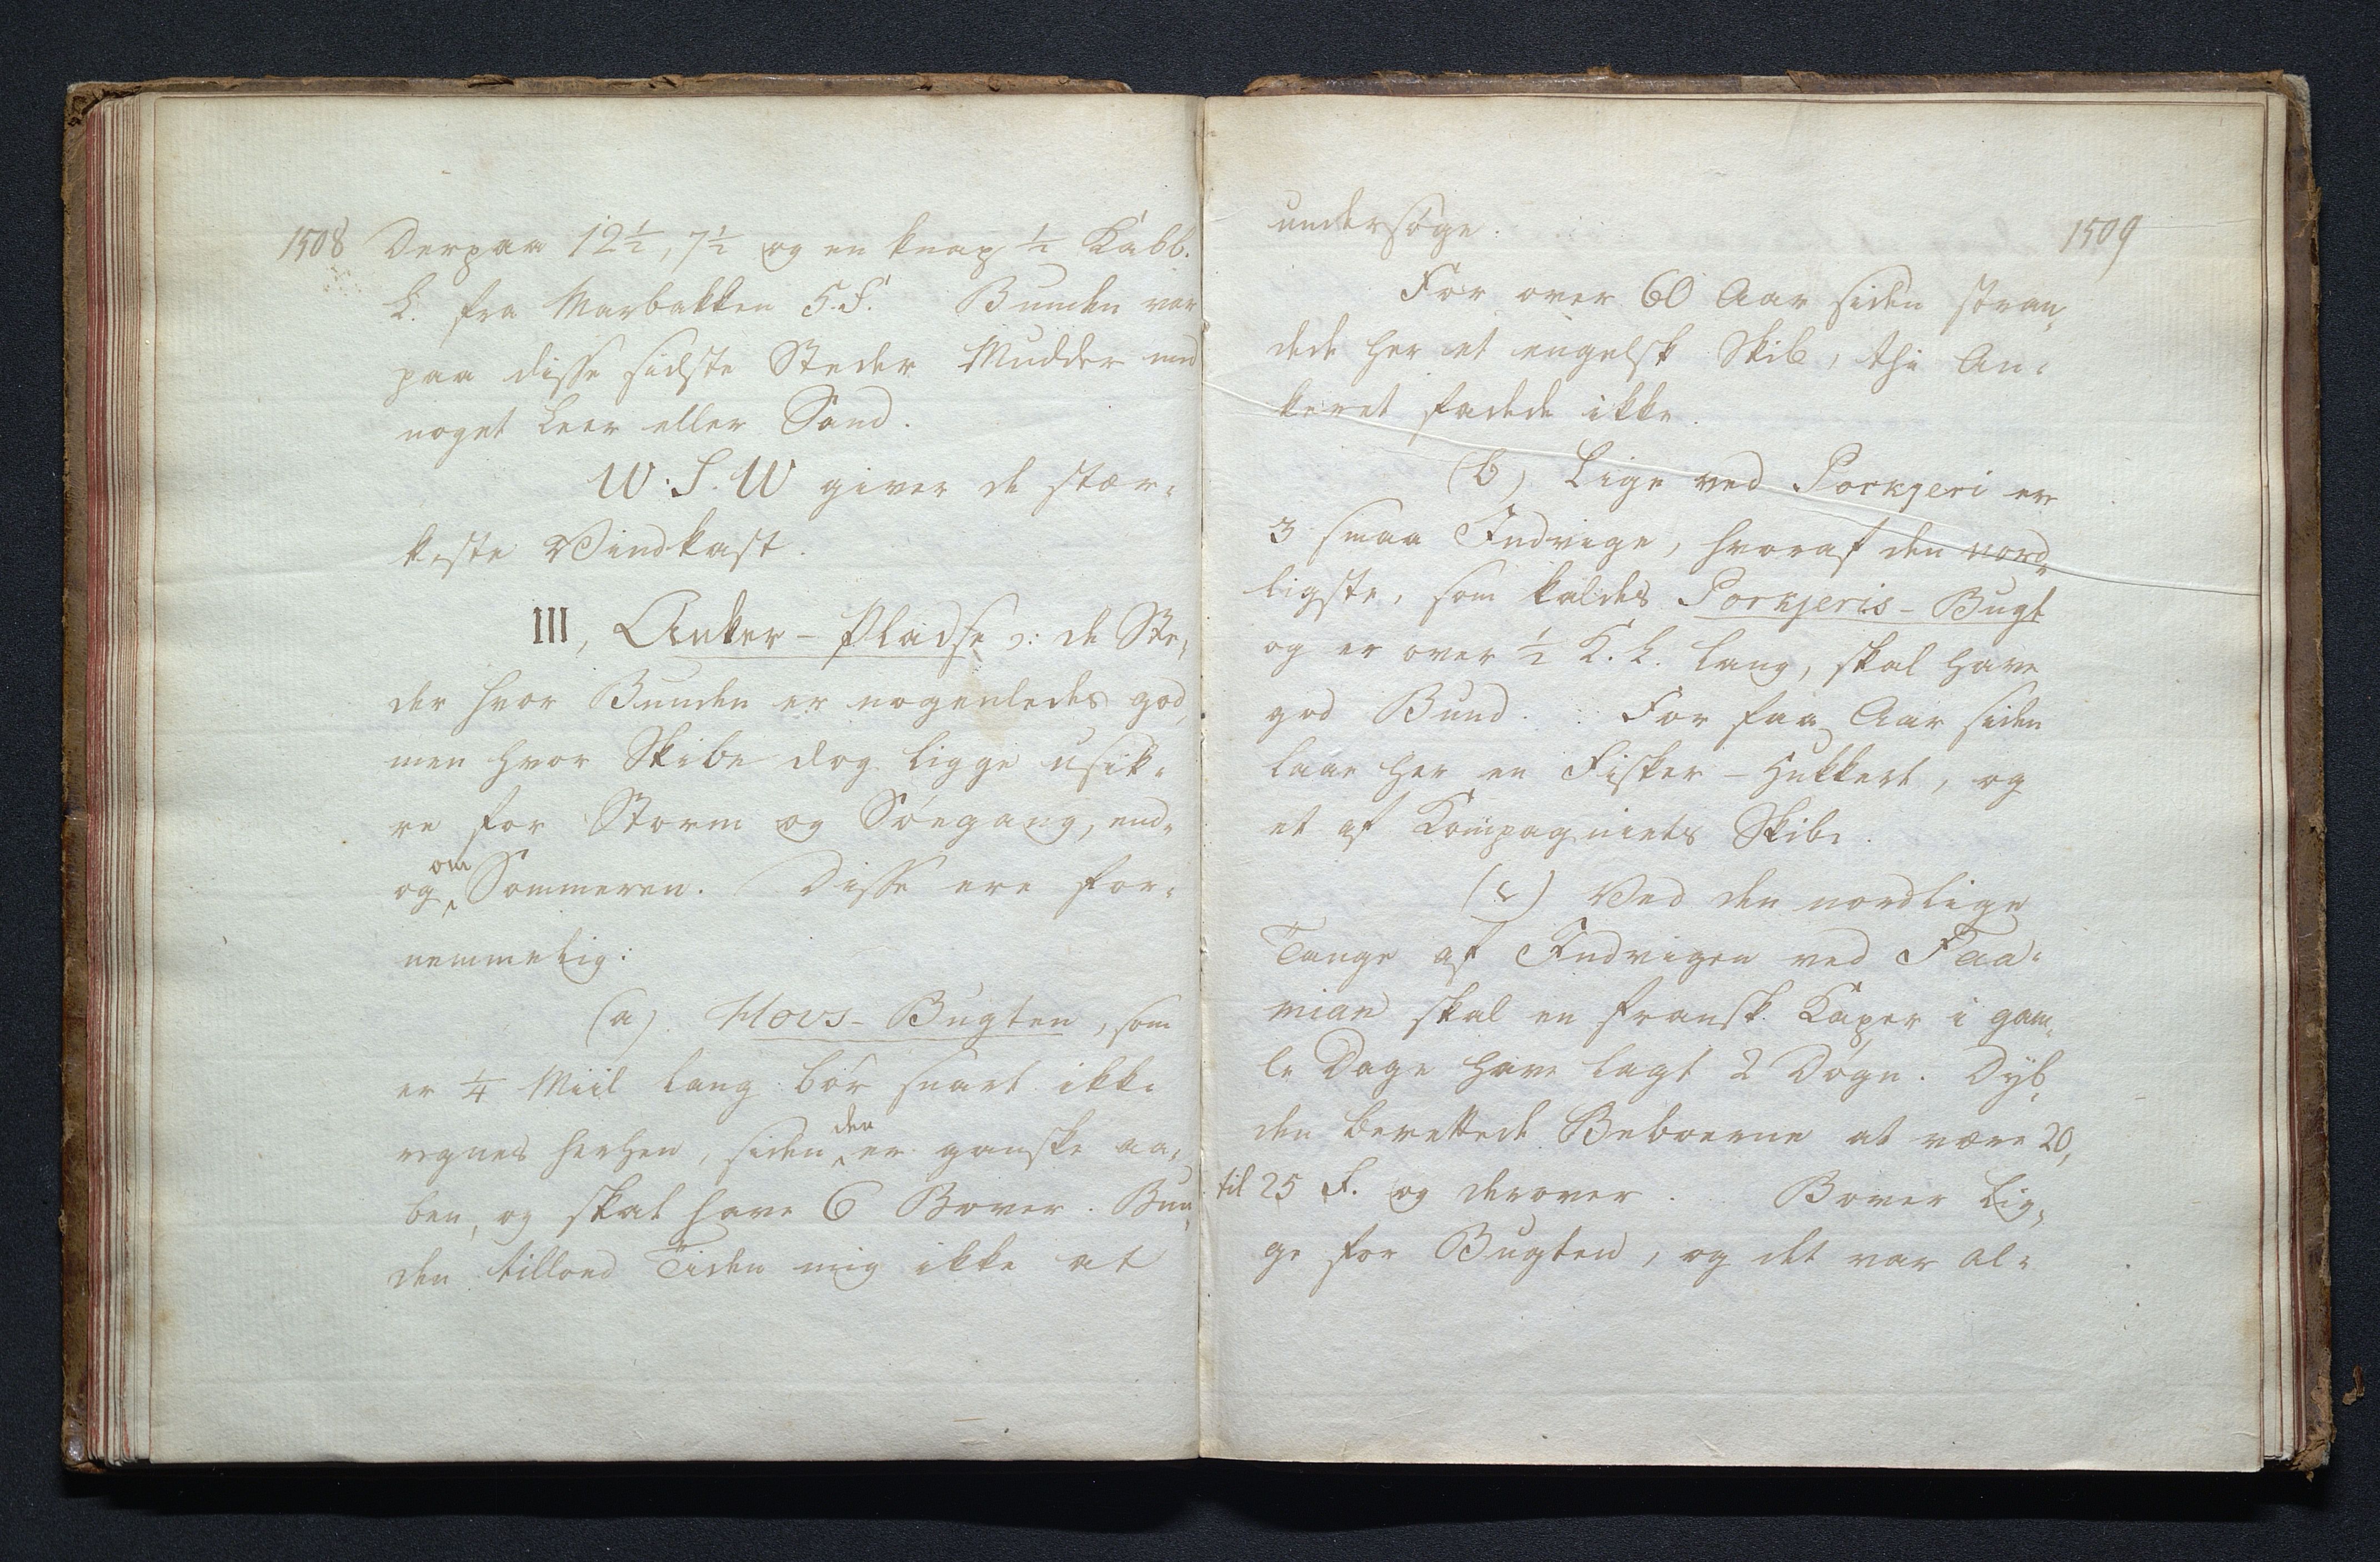 1508
Derpaa 12½, 7½ og en knap ½ Kabb.
L. fra Marbakken 5. F. Bunden var
paa disse sidste Steder Mudder med
noget Leer eller Sand.
W. S. W giver de stær-
keste Vindkast.
III, Anker-Pladse ɔ: de Ste-
der hvor Bunden er nogenledes god,
men hvor Skibe dog ligge usik-
re for Storm og Søegang, end-
og om Sommeren. Disse ere for-
nemmelig:
(a) Hovs-Bugten, som
er ¼ Miil lang bör snart ikke
regnes herhen, siden den er ganske aa-
ben, og skal have 6 Bover. Bun-
den tillod Tiden mig ikke at
1509
undersøge.
For over 60 Aar siden stran-
dede her et engelsk Skib, thi An-
keret fadede ikke.
(b) Lige ved Porkjeri er
3 smaa Indvige, hvoraf den nord-
ligste, som kaldes Porkjeris-Bugt
og er over ½ K. L. lang, skal have
god Bund. For faa Aar siden
laae her en Fisker-Hukkert, og
et af Kompagniets Skibe.
(c) Ved den nordlige
Tange af Indvigen ved Faa-
mian skal en fransk Kaper i gam-
le Dage have lagt 2 Døgn. Dyb-
den berettede Beboerne at være 20,
til 25 F. og derover. Bover lig-
ge for Bugten, og det var al-